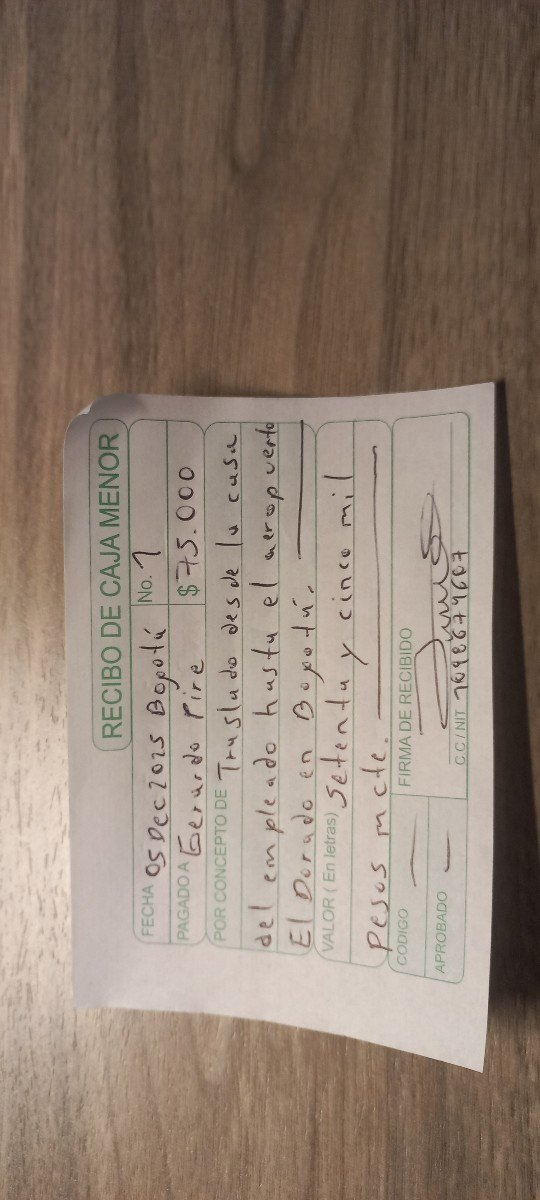 RECIBO DE CAJA MENOR
FECHA 05 Dec 2025 Bogotá No. 1
PAGADO A Gerardo Pire $ 75.000
POR CONCEPTO DE Traslado desde la casa
del empleado hasta el aeropuerto
El Dorado en Bogotá.
VALOR ( En letras) Setenta y cinco mil
pesos m cte.
CODIGO — FIRMA DE RECIBIDO
APROBADO —
C.C / NIT